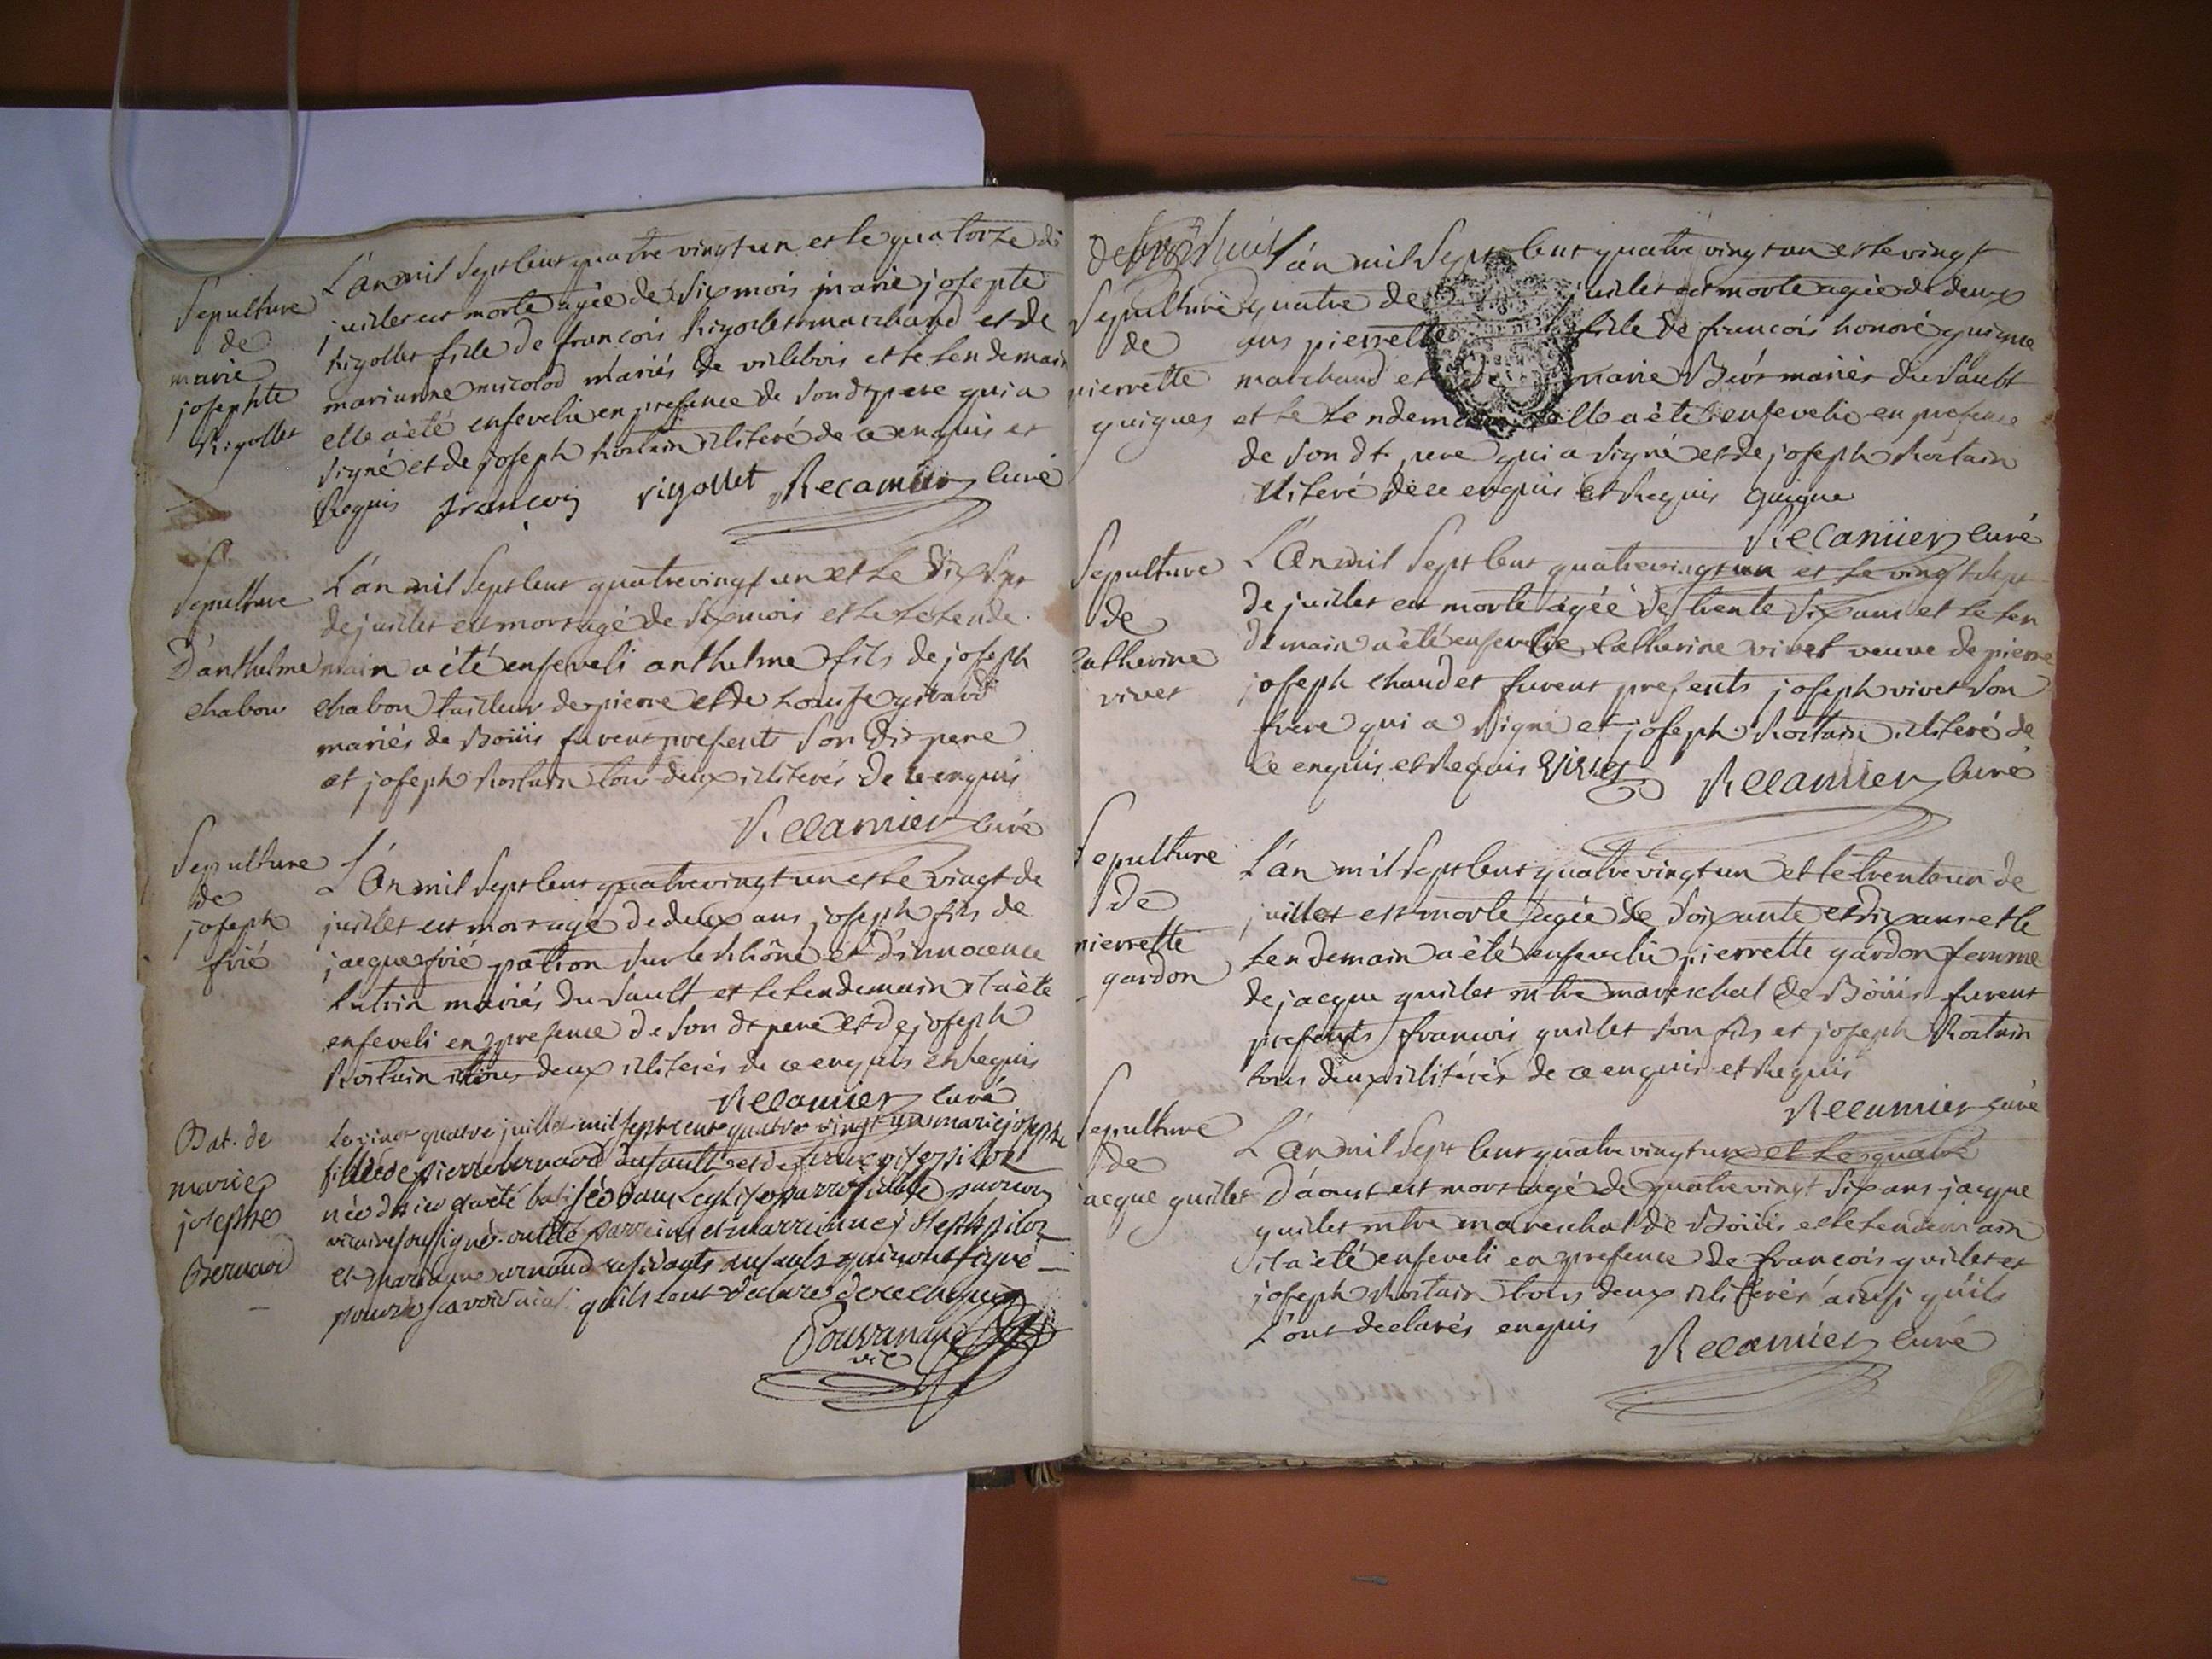 Sepulture
de
marie
josephte
Rigollet
L'an mil Sept Cent quatre vingt un et le quatorze de
juillet est morte agée de Six mois marie josephte
Rigollet fille de françois Rigollet marchand et de
marianne micolod mariés de villebois et le lendemain
elle a été ensevelie en presence de Son dt pere qui a
Signé et de joseph Rostain illiteré de ce enquis et
Requis françois rigollet Recamier Curé
Sepulture
D'anthelme
chabou
L'an mil Sept Cent quatre vingt un et le dix Sept
de juillet est mort agé de Six mois et le lende
main a été enseveli anthelme fils de joseph
chabou tailleur de pierre et de Louise girard
mariés de Boüis furent presents Son dit pere
et joseph Rostain tous deux illiterés de ce enquis
Recamier Curé
Sepulture
de
joseph
frié
L'an mil Sept Cent quatre vingt un et le vingt de
juillet est mort agé de deux ans joseph fils de
jacque frié patron Sur le Rhône et D'innocence
Lutrin mariés du Sault et le lendemain il a été
enseveli en presence de Son dt pere et de joseph
Rostain tous deux illiterés de ce enquis et Requis
Recamier Curé
Bat. de
marie
josephe
Bernard
Le vingt quatre juillet mil sept cent quatre vingt un marie josephe
fille de pierre bernard du sault et de françoise pilos
née d'hier a été batisée dans l'eglise parroissiale par moy
vicaire soussigné. ont été parrein et marreinne joseph pilos
et mariane arnaud residants au sault qui n'ont signé
pour ne scavoir ainsi qu'ils l'ont declaré de ce enquis
vic
Sepulture
de
pierrette
guigues
L'an mil Sept Cent quatre vingt un et le vingt
quatre de juillet est morte agée de deux
ans pierrette fille de françois honoré guigue
marchand et de marie Bios mariés du Sault
et le lendemain elle a été ensevelie en presence
de Son dt pere qui a Signé et de joseph Rostain
illiteré de ce enquis et Requis guigue
Recamier Curé
Sepulture
de
Catherine
vivet
L'an mil Sept Cent quatre vingt un et le vingt Sept
de juillet est morte agée de trente Six ans et le len
demain a été ensevelie Catherine vivet veuve de pierre
joseph chaudet furent presents joseph vivet Son
frere qui a Signé et joseph Rostain illiteré de
ce enquis et Requis Vivet Recamier Curé
Sepulture
de
pierrette
gardon
L'an mil Sept Cent quatre vingt un et le trente un de
juillet est morte agée de Soixante et dix ans et le
lendemain a été ensevelie pierrette gardon femme
de jacque guillet mtre mareschal de Boüis furent
presents françois guillet Son fils et joseph Rostain
tous deux illiterés de ce enquis et Requis
Recamier Curé
Sepulture
de
jacque guillet
L'an mil Sept Cent quatre vingt un et le quatre
D'aoust est mort agé de quatre vingt Six ans jacque
guillet mtre mareschal de Boüis et le lendemain
il a été enseveli en presence de françois guillet et
joseph Rostain tous deux illiterés ainsi qu'ils
L'ont declarés enquis
Recamier Curé